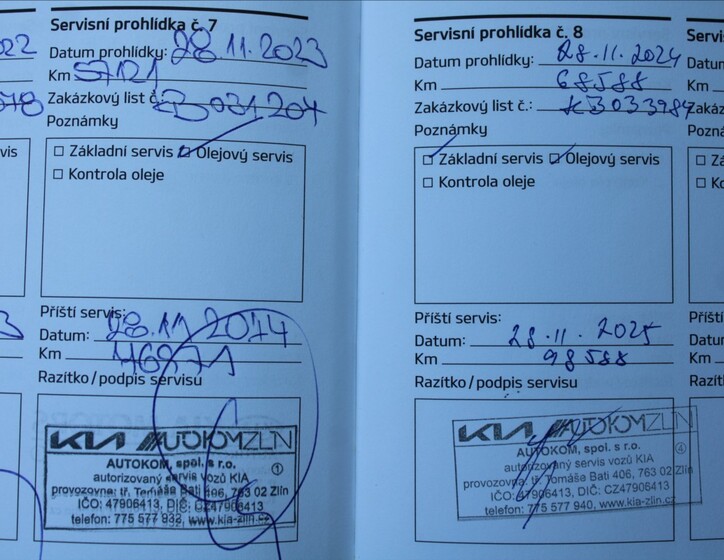 Servisní prohlídka č. 7
Datum prohlídky: 28.11.2023
Km 57121
Zakázkový list č.: KB031204
Poznámky
□ Základní servis ☑ Olejový servis
□ Kontrola oleje
Příští servis:
Datum: 28.11 2014
Km
Razítko/podpis servisu
KIA AUTOKOMZLÍN
AUTOKOM, spol. s r.o.
autorizovaný servis vozů KIA
provozovna: tř. Tomáše Bati 406, 763 02 Zlín
IČO: 47906413, DIČ: CZ47906413
telefon: 775 577 932, www.kia-zlin.cz
1
Servisní prohlídka č. 8
Datum prohlídky: 28.11.2024
Km 68588
Zakázkový list č.: KB033984
Poznámky
☑ Základní servis ☑ Olejový servis
□ Kontrola oleje
Příští servis:
Datum: 28.11.2025
Km 98588
Razítko/podpis servisu
KIA AUTOKOMZLÍN
AUTOKOM, spol. s r.o.
autorizovaný servis vozů KIA
provozovna: tř. Tomáše Bati 406, 763 02 Zlín
IČO: 47906413, DIČ: CZ47906413
telefon: 775 577 940, www.kia-zlin.cz
4